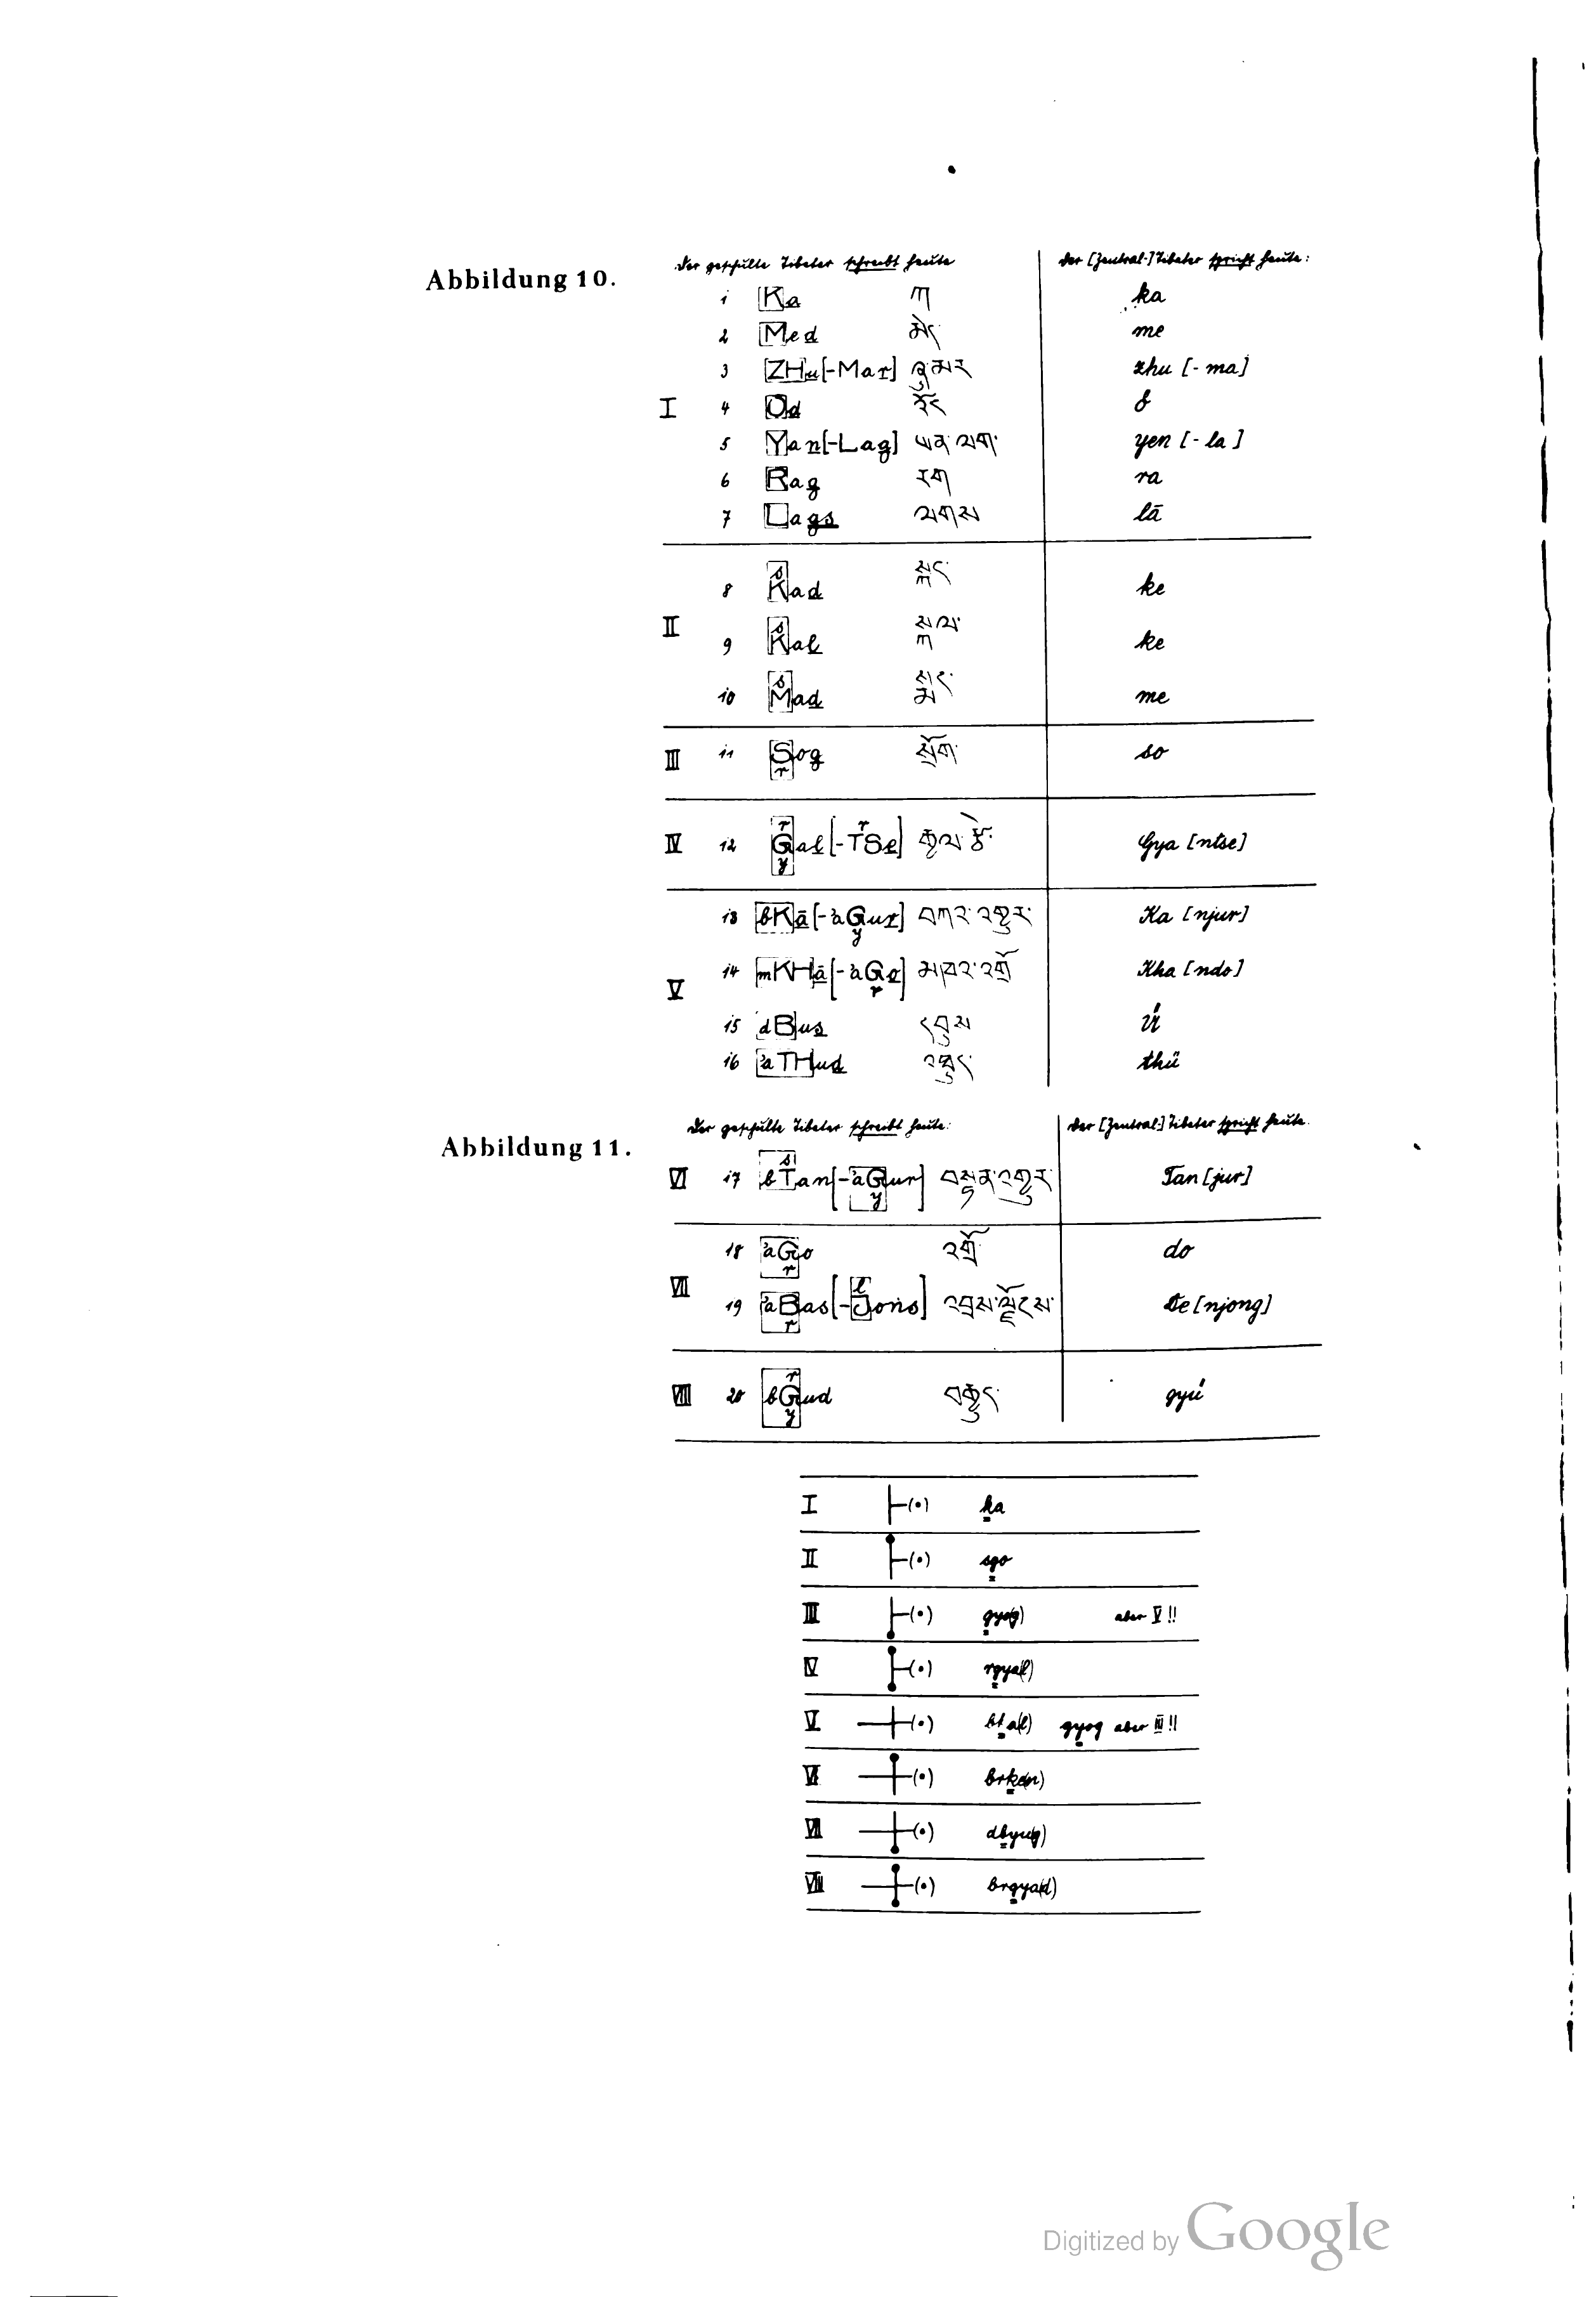 Abbildung 10.
Der geschulte Tibeter schreibt heute
der [Zentral-] Tibeter spricht heute:
I
1 Ka ཀ ka
2 Med མེད me
3 ZHu[-Mar] ཞུ་མར zhu [-ma]
4 Od འོད ö
5 Yan[-Lag] ཡན་ལག་ yen [-la]
6 Rag རག ra
7 Lags ལགས lā
II
8 sKad སྐད་ ke
9 sKal སྐལ་ ke
10 sMad སྨད་ me
III 11 Srog སྲོག་ so
IV 12 rGyal[-rTSe] རྒྱལ་རྩེ་ Gya [ntse]
V
13 bKā[-'aGyur] བཀའ་འགྱུར་ Ka [njur]
14 mKHā[-'aGro] མཁའ་འགྲོ Kha [ndo]
15 dBus དབུས ü
16 'aTHud འཐུད་ thü
Abbildung 11.
Der geschulte Tibeter schreibt heute:
der [Zentral-] Tibeter spricht heute.
VI 17 bsTan[-'aGyur] བསྟན་འགྱུར་ Tan [jur]
VII
18 'aGro འགྲོ་ do
19 'aBras[-lJons] འབྲས་ལྗོངས་ De [njong]
VIII 20 brGyud བརྒྱུད་ gyü
I (•) ka
II (•) sgo
III (•) gyo(g) aber V!!
IV (•) rgya(l)
V (•) bta(l) gyog aber III!!
VI (•) brka(n)
VII (•) dbyu(g)
VIII (•) brgya(d)
Digitized by Google